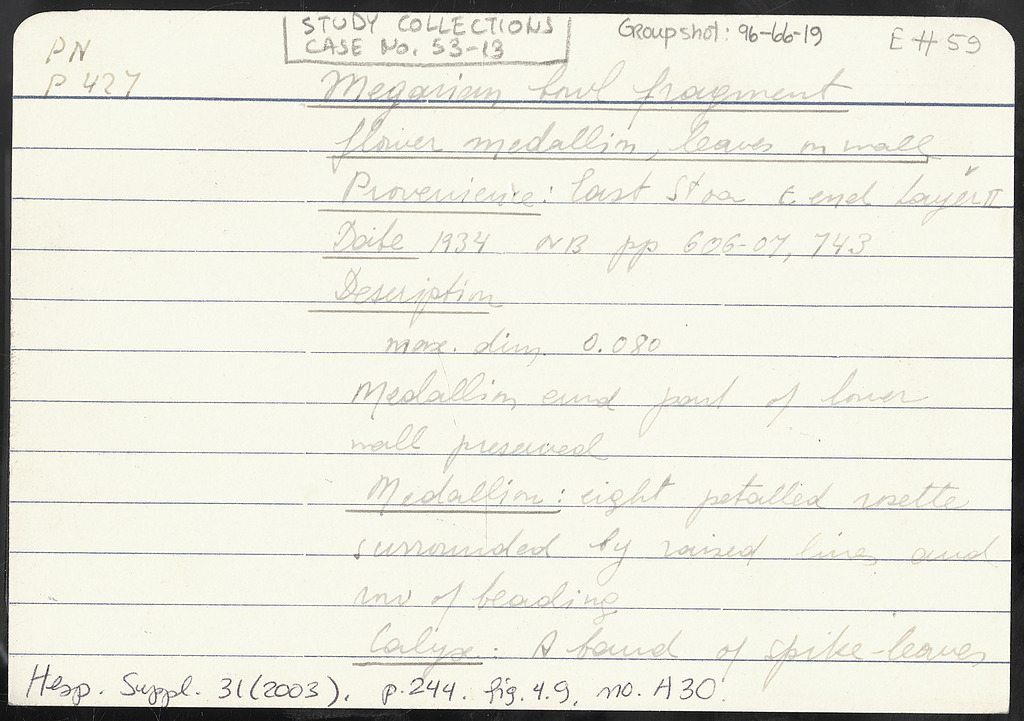 STUDY COLLECTIONS
CASE No. 53-13
Groupshot: 96-66-19
E # 59
PN
P 427
Megarian bowl fragment
flower medallion, leaves on wall
Provenience: East Stoa E end Layer II
Date 1934 NB pp 606-07, 743
Description
max. dim. 0.080
Medallion and part of lower
wall preserved
Medallion: eight petalled rosette
surrounded by raised lines and
row of beading
Calyx: A band of spike-leaves
Hesp. Suppl. 31 (2003). p. 244. fig. 4.9, no. A30.